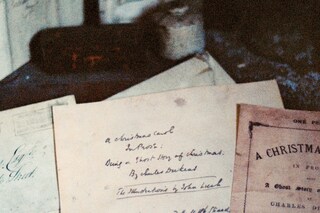 A Christmas Carol
In Prose;
Being a Ghost Story of Christmas.
By Charles Dickens
The Illustrations by John Leech
A CHRISTMAS
IN PR
A Ghost Story o
CHARLES DI